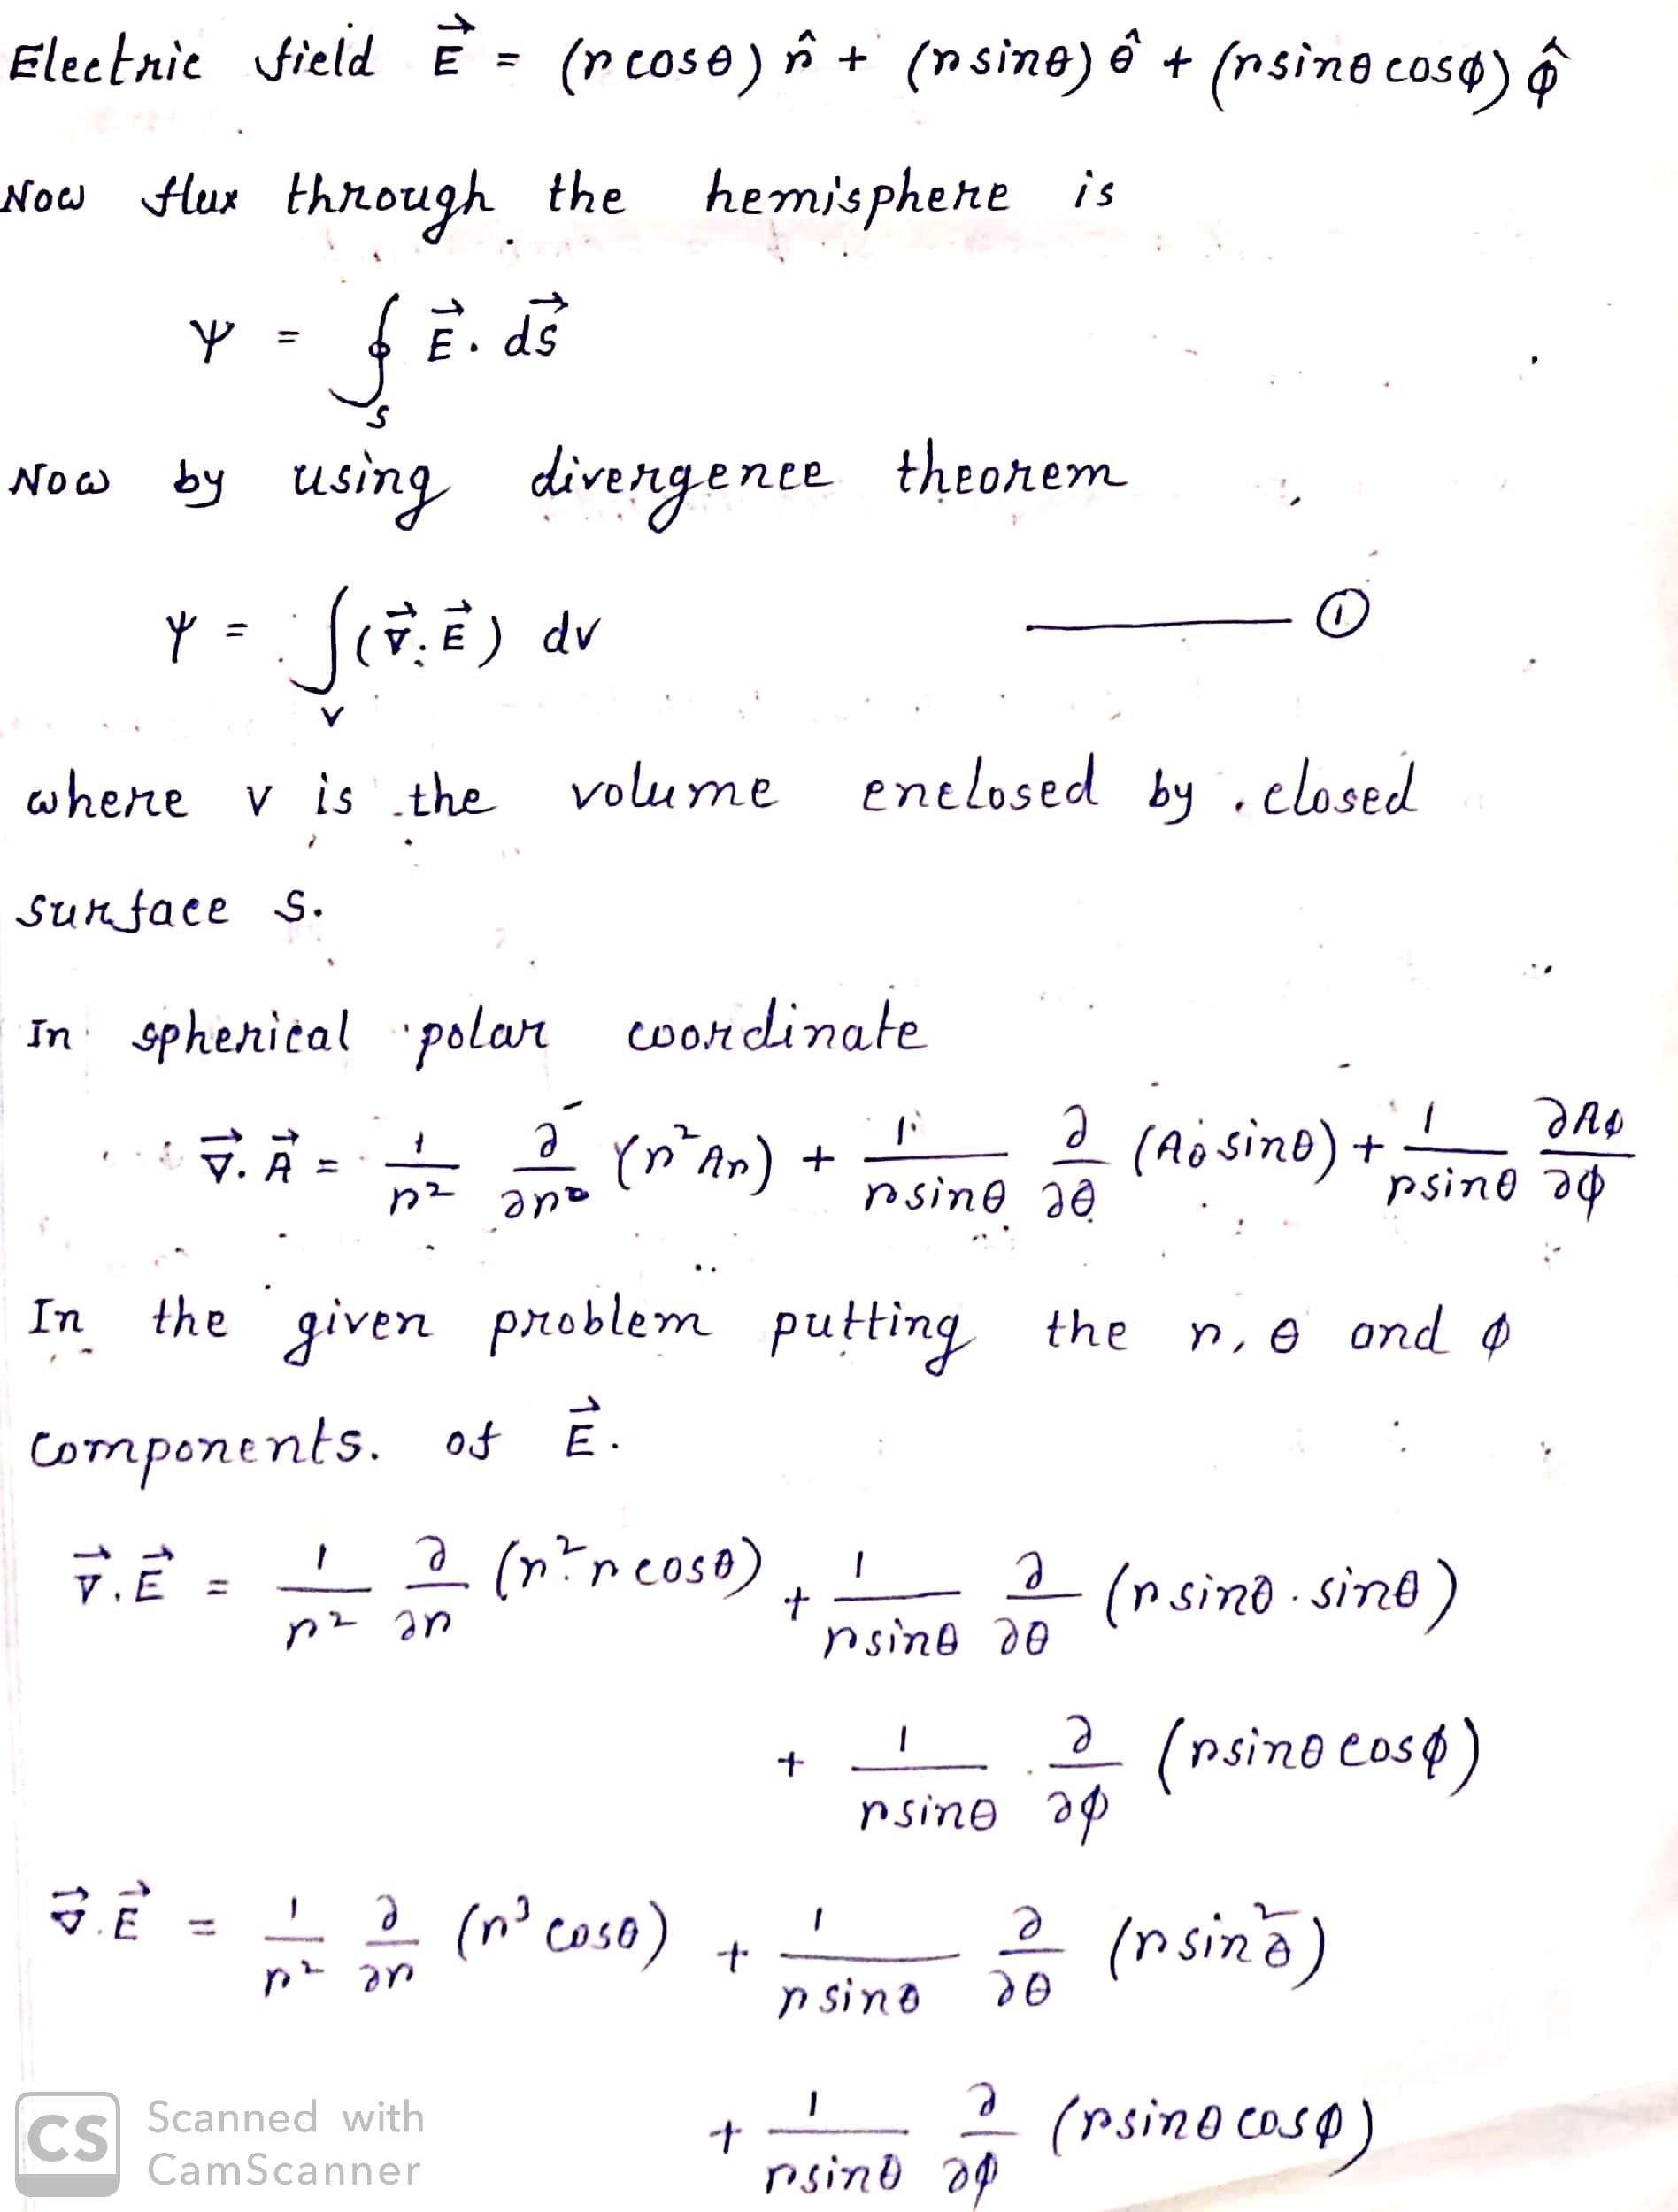 Electric field E⃗ = (r cosθ) r̂ + (r sinθ) θ̂ + (r sinθ cosφ) φ̂
Now flux through the hemisphere is
ψ = ∮_S E⃗ · ds⃗
Now by using divergence theorem
ψ = ∫_V (∇⃗ · E⃗) dv ——— ①
where v is the volume enclosed by closed
surface s.
In spherical polar coordinate
∇⃗ · A⃗ = 1/r² ∂/∂r (r² Ar) + 1/(r sinθ) ∂/∂θ (Aθ sinθ) + 1/(r sinθ) ∂Aφ/∂φ
In the given problem putting the r, θ and φ
components. of E⃗.
∇⃗ · E⃗ = 1/r² ∂/∂r (r² · r cosθ) + 1/(r sinθ) ∂/∂θ (r sinθ · sinθ)
+ 1/(r sinθ) · ∂/∂φ (r sinθ cosφ)
∇⃗ · E⃗ = 1/r² ∂/∂r (r³ cosθ) + 1/(r sinθ) ∂/∂θ (r sin²θ)
+ 1/(r sinθ) ∂/∂φ (r sinθ cosφ)
CS Scanned with
CamScanner